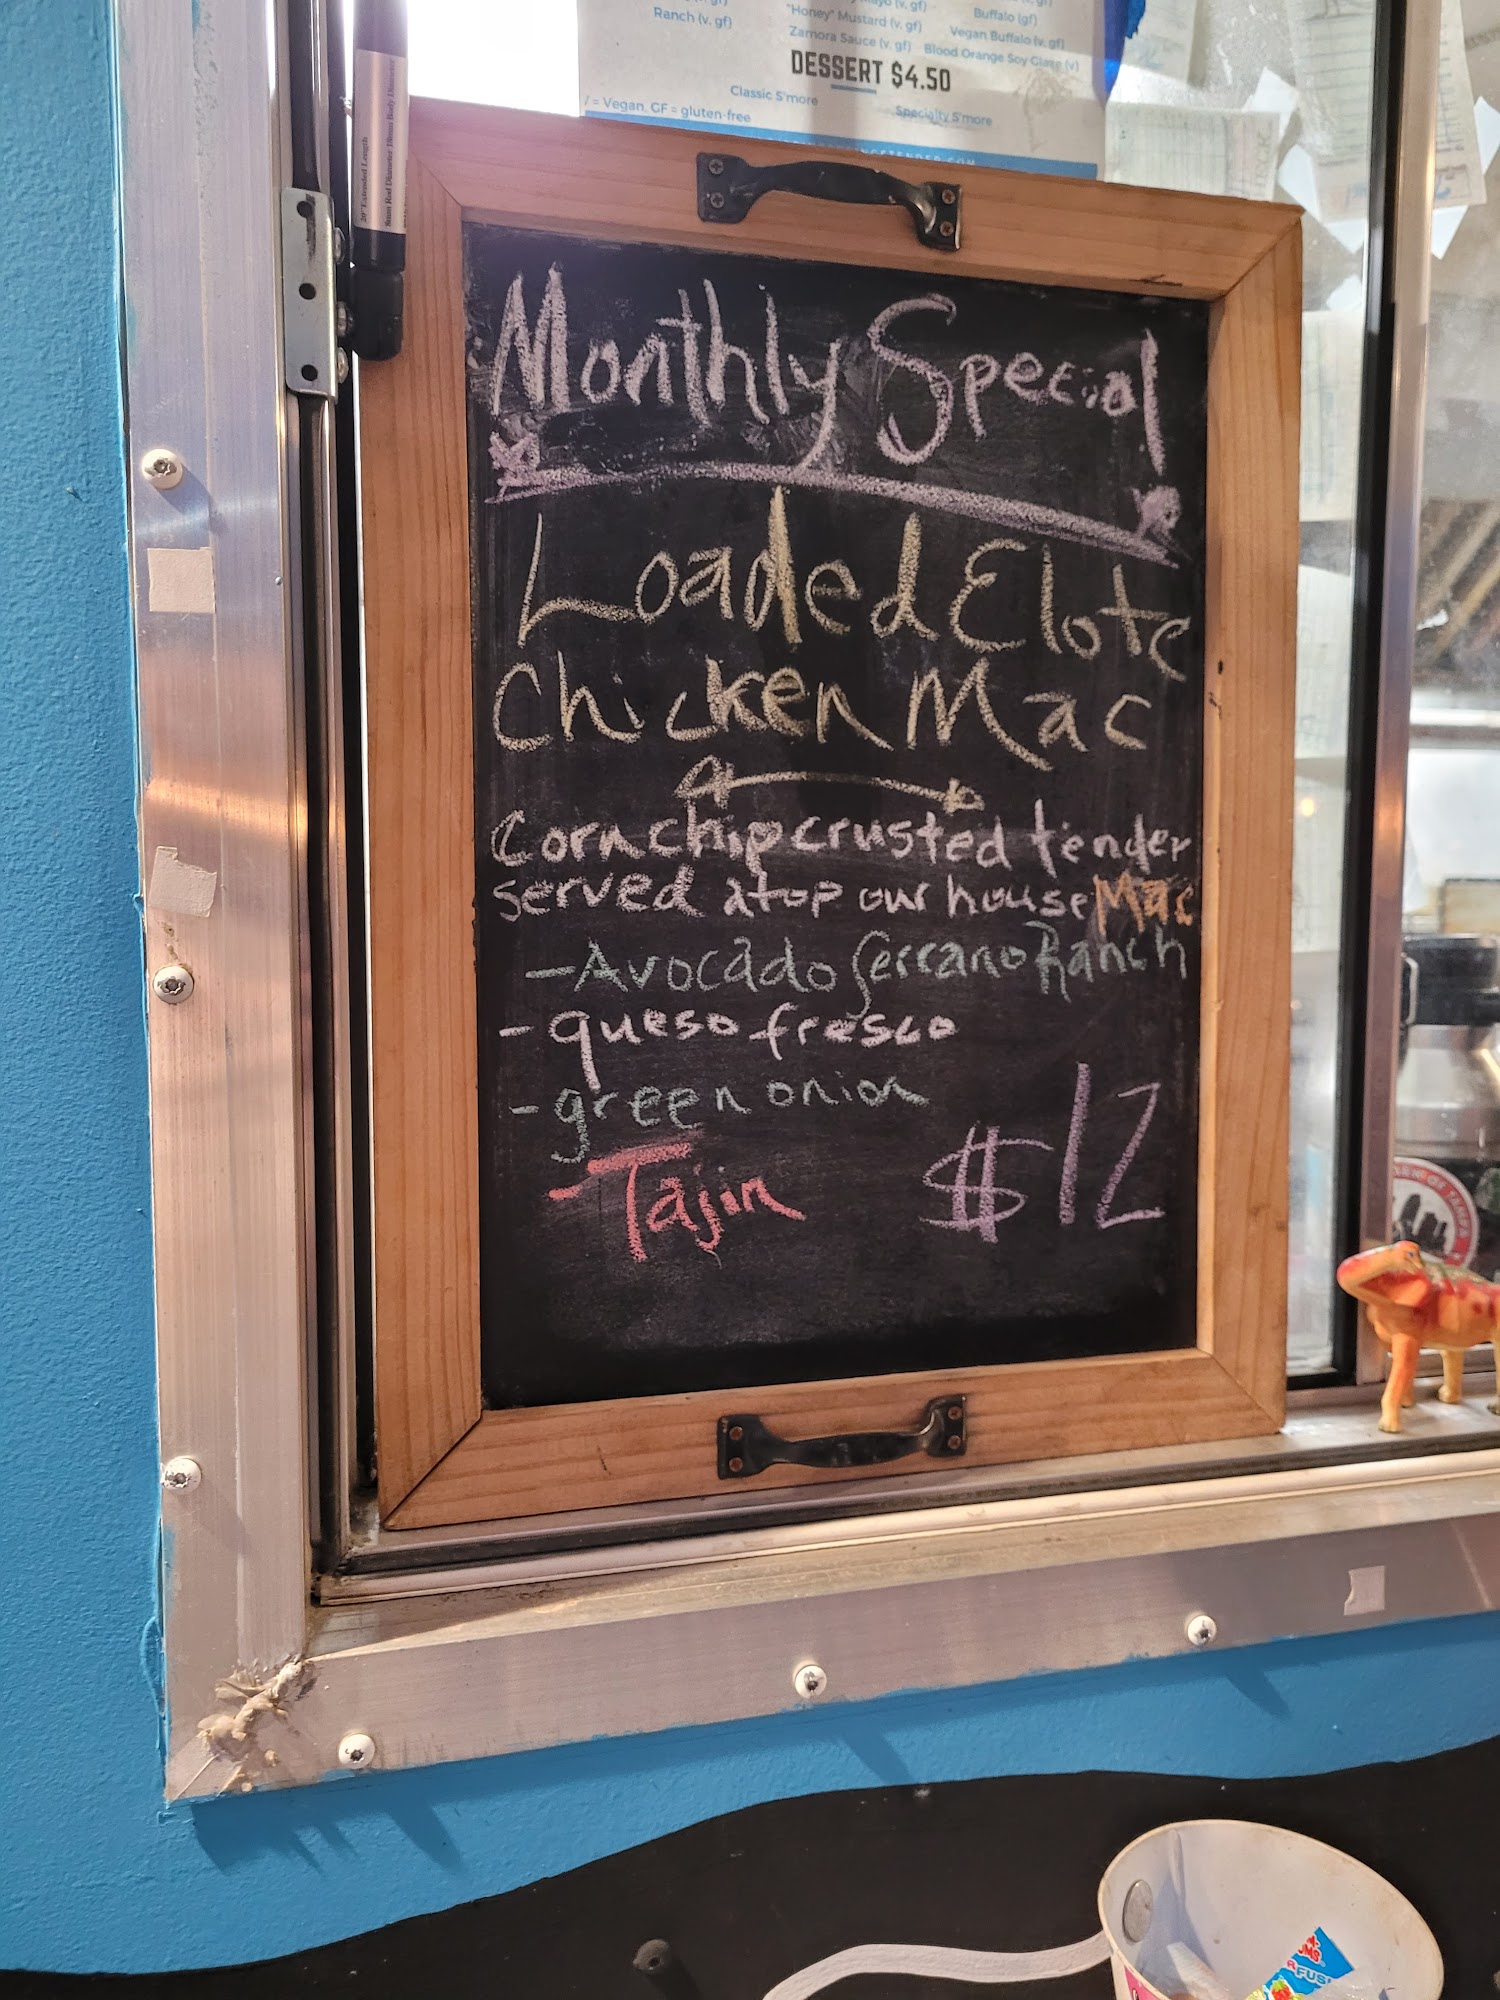 Ranch (v, gf)
"Honey" Mustard (v, gf)
Zamora Sauce (v, gf)
Buffalo (gf)
Vegan Buffalo (v, gf)
Blood Orange Soy Glaze (v)
DESSERT $4.50
Classic S'more
Specialty S'more
= Vegan, GF = gluten-free
20" Extended Length
8mm Rod Diameter 18mm Body Diameter
Monthly Special
Loaded Elote
Chicken Mac
Corn chip crusted tender
served atop our house Mac
- Avocado Serrano Ranch
- queso fresco
- green onion
- Tajin
$12